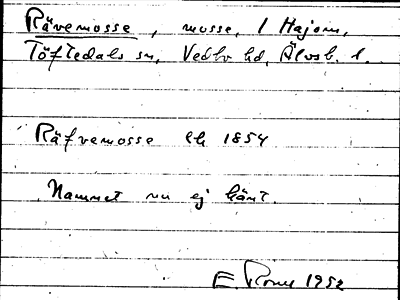 Rävemosse, mosse, i Hajom,
Töftedals sn, Vedbo hd, Älvsb. l.
Räfvemosse ek 1854
Namnet nu ej känt.
E. 1952